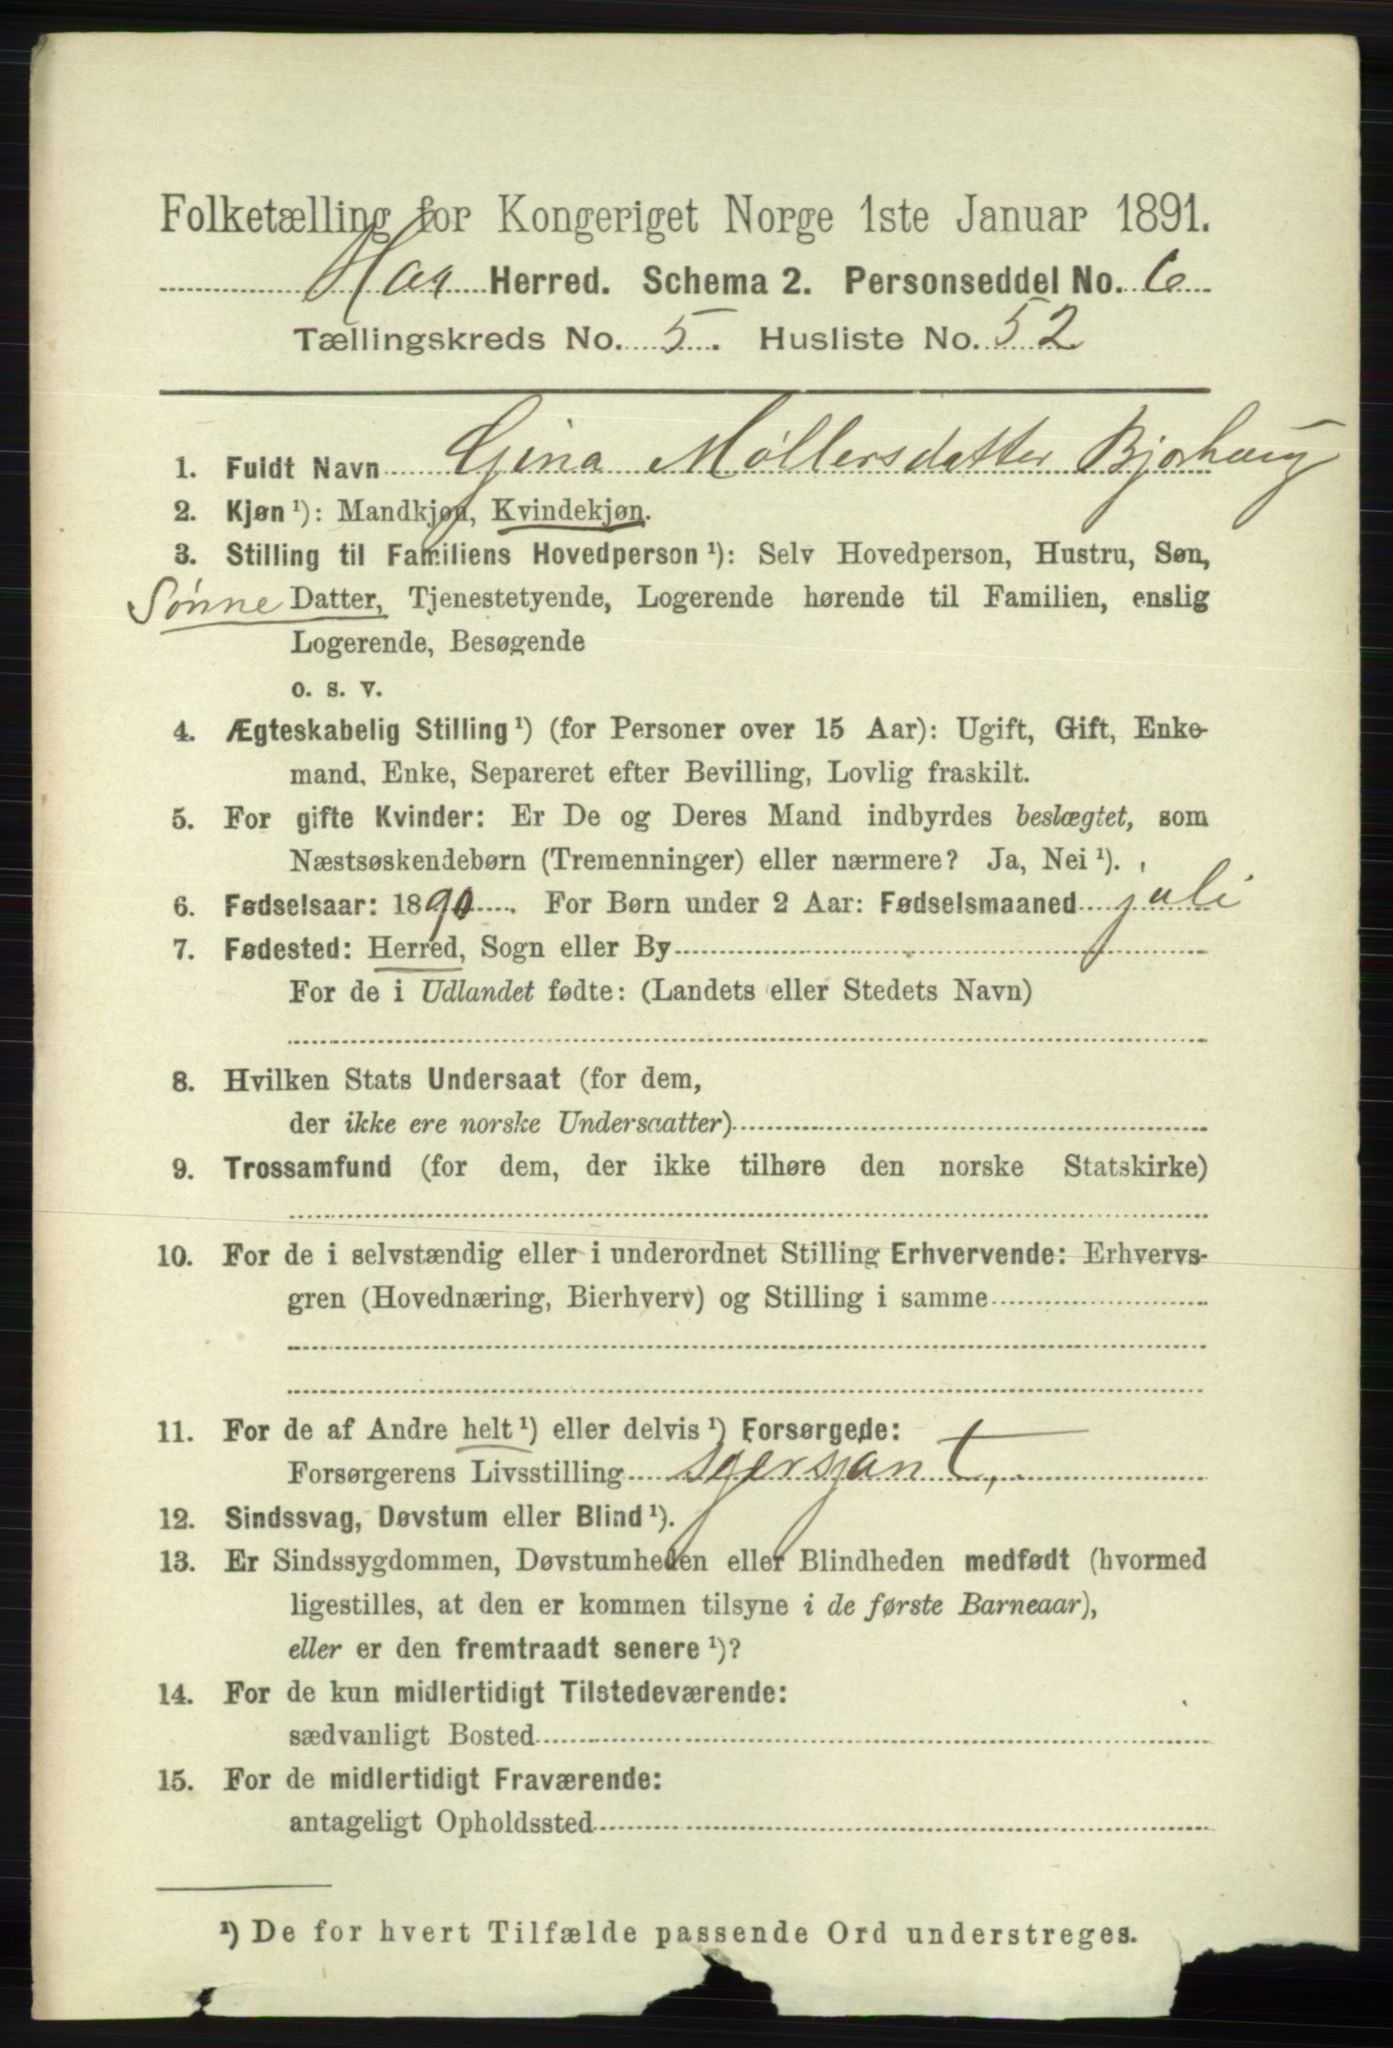 Folketælling for Kongeriget Norge 1ste Januar 1891.
Haa Herred. Schema 2. Personseddel No. 6
Tællingskreds No. 5. Husliste No. 52
1. Fuldt Navn Gina Møllersdatter Bjorhaug
2. Kjøn ¹): Mandkjøn, Kvindekjøn.
3. Stilling til Familiens Hovedperson ¹): Selv Hovedperson, Hustru, Søn,
Sønne Datter, Tjenestetyende, Logerende hørende til Familien, enslig
Logerende, Besøgende
o. s. v.
4. Ægteskabelig Stilling ¹) (for Personer over 15 Aar): Ugift, Gift, Enke-
mand, Enke, Separeret efter Bevilling, Lovlig fraskilt.
5. For gifte Kvinder: Er De og Deres Mand indbyrdes beslægtet, som
Næstsøskendebørn (Tremenninger) eller nærmere? Ja, Nei ¹).
6. Fødselsaar: 1890. For Børn under 2 Aar: Fødselsmaaned juli
7. Fødested: Herred, Sogn eller By
For de i Udlandet fødte: (Landets eller Stedets Navn)
8. Hvilken Stats Undersaat (for dem,
der ikke ere norske Undersaatter)
9. Trossamfund (for dem, der ikke tilhøre den norske Statskirke)
10. For de i selvstændig eller i underordnet Stilling Erhvervende: Erhvervs-
gren (Hovednæring, Bierhverv) og Stilling i samme
11. For de af Andre helt ¹) eller delvis ¹) Forsørgede:
Forsørgerens Livsstilling sjersjant,
12. Sindssvag, Døvstum eller Blind ¹).
13. Er Sindssygdommen, Døvstumheden eller Blindheden medfødt (hvormed
ligestilles, at den er kommen tilsyne i de første Barneaar),
eller er den fremtraadt senere ¹)?
14. For de kun midlertidigt Tilstedeværende:
sædvanligt Bosted
15. For de midlertidigt Fraværende:
antageligt Opholdssted
¹) De for hvert Tilfælde passende Ord understreges.